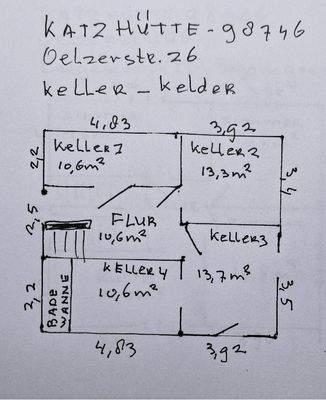 KATZHÜTTE - 98746
Oelzerstr. 26
Keller - Kelder
4,83
3,92
Keller 1
10,6m²
Keller 2
13,3m²
2,2
3,4
2,5
FLUR
10,6m²
Keller 3
13,7m²
KELLER 4
10,6m²
2,2
BADE
WANNE
3,5
4,83
3,92